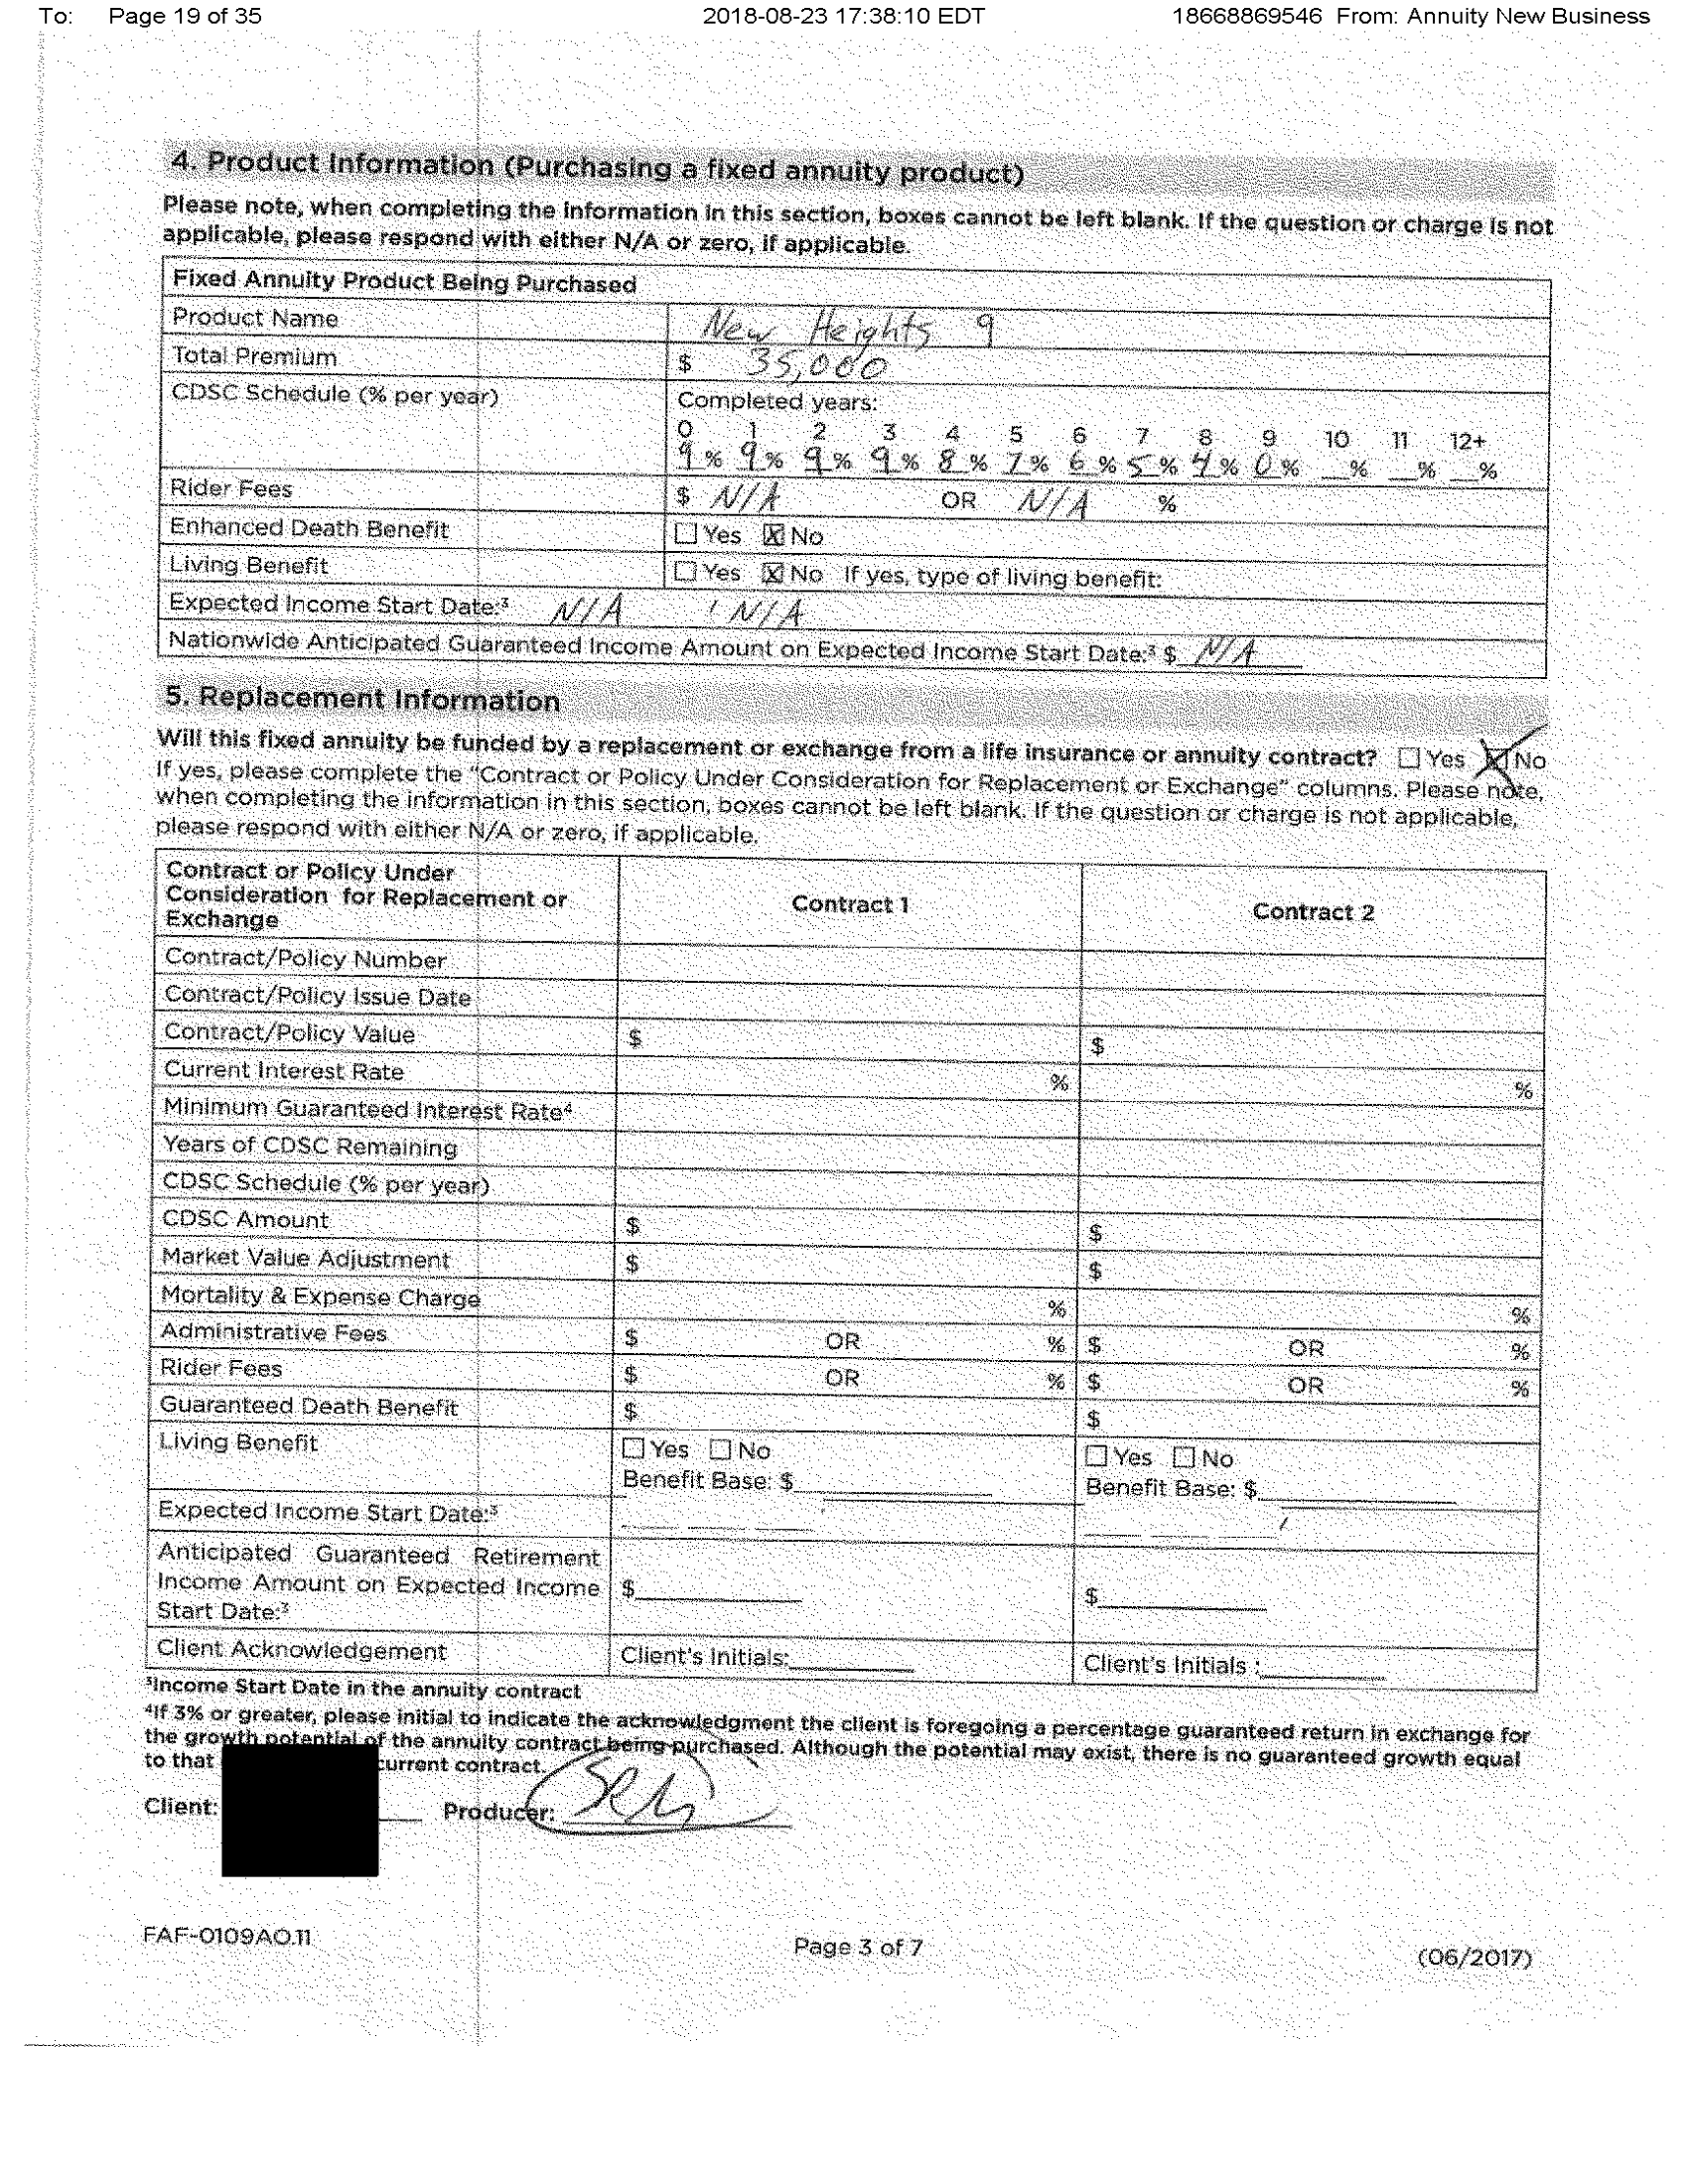 To: Page 19 of 35 2018-08-23 17:38:10 EDT 18668869546 From: Annuity New Business
4. Product Information (Purchasing a fixed annuity product)
Please note, when completing the information in this section, boxes cannot be left blank. If the question or charge is not
applicable, please respond with either N/A or zero, if applicable.
Fixed Annuity Product Being Purchased
Product Name New Heights 9
Total Premium $ 35,000
CDSC Schedule (% per year) Completed years:
0 1 2 3 4 5 6 7 8 9 10 11 12+
9 % 9 % 9 % 9 % 8 % 7 % 6 % 5 % 4 % 0 % __% __% __%
Rider Fees $ N/A OR N/A %
Enhanced Death Benefit ☐ Yes ☒ No
Living Benefit ☐ Yes ☒ No If yes, type of living benefit:
Expected Income Start Date:³ N/A / N/A
Nationwide Anticipated Guaranteed Income Amount on Expected Income Start Date:³ $ N/A
5. Replacement Information
Will this fixed annuity be funded by a replacement or exchange from a life insurance or annuity contract? ☐ Yes ☒ No
If yes, please complete the "Contract or Policy Under Consideration for Replacement or Exchange" columns. Please note,
when completing the information in this section, boxes cannot be left blank. If the question or charge is not applicable,
please respond with either N/A or zero, if applicable.
Contract or Policy Under
Consideration for Replacement or
Exchange
Contract 1
Contract 2
Contract/Policy Number
Contract/Policy Issue Date
Contract/Policy Value $ $
Current Interest Rate % %
Minimum Guaranteed Interest Rate⁴
Years of CDSC Remaining
CDSC Schedule (% per year)
CDSC Amount $ $
Market Value Adjustment $ $
Mortality & Expense Charge % %
Administrative Fees $ OR % $ OR %
Rider Fees $ OR % $ OR %
Guaranteed Death Benefit $ $
Living Benefit ☐ Yes ☐ No ☐ Yes ☐ No
Benefit Base: $ Benefit Base: $
Expected Income Start Date:³
Anticipated Guaranteed Retirement
Income Amount on Expected Income $ $
Start Date:³
Client Acknowledgement Client's Initials: Client's Initials :
³Income Start Date in the annuity contract
⁴If 3% or greater, please initial to indicate the acknowledgment the client is foregoing a percentage guaranteed return in exchange for
the growth potential of the annuity contract being purchased. Although the potential may exist, there is no guaranteed growth equal
to that current contract.
Client: Producer:
FAF-0109AO.11 Page 3 of 7 (06/2017)